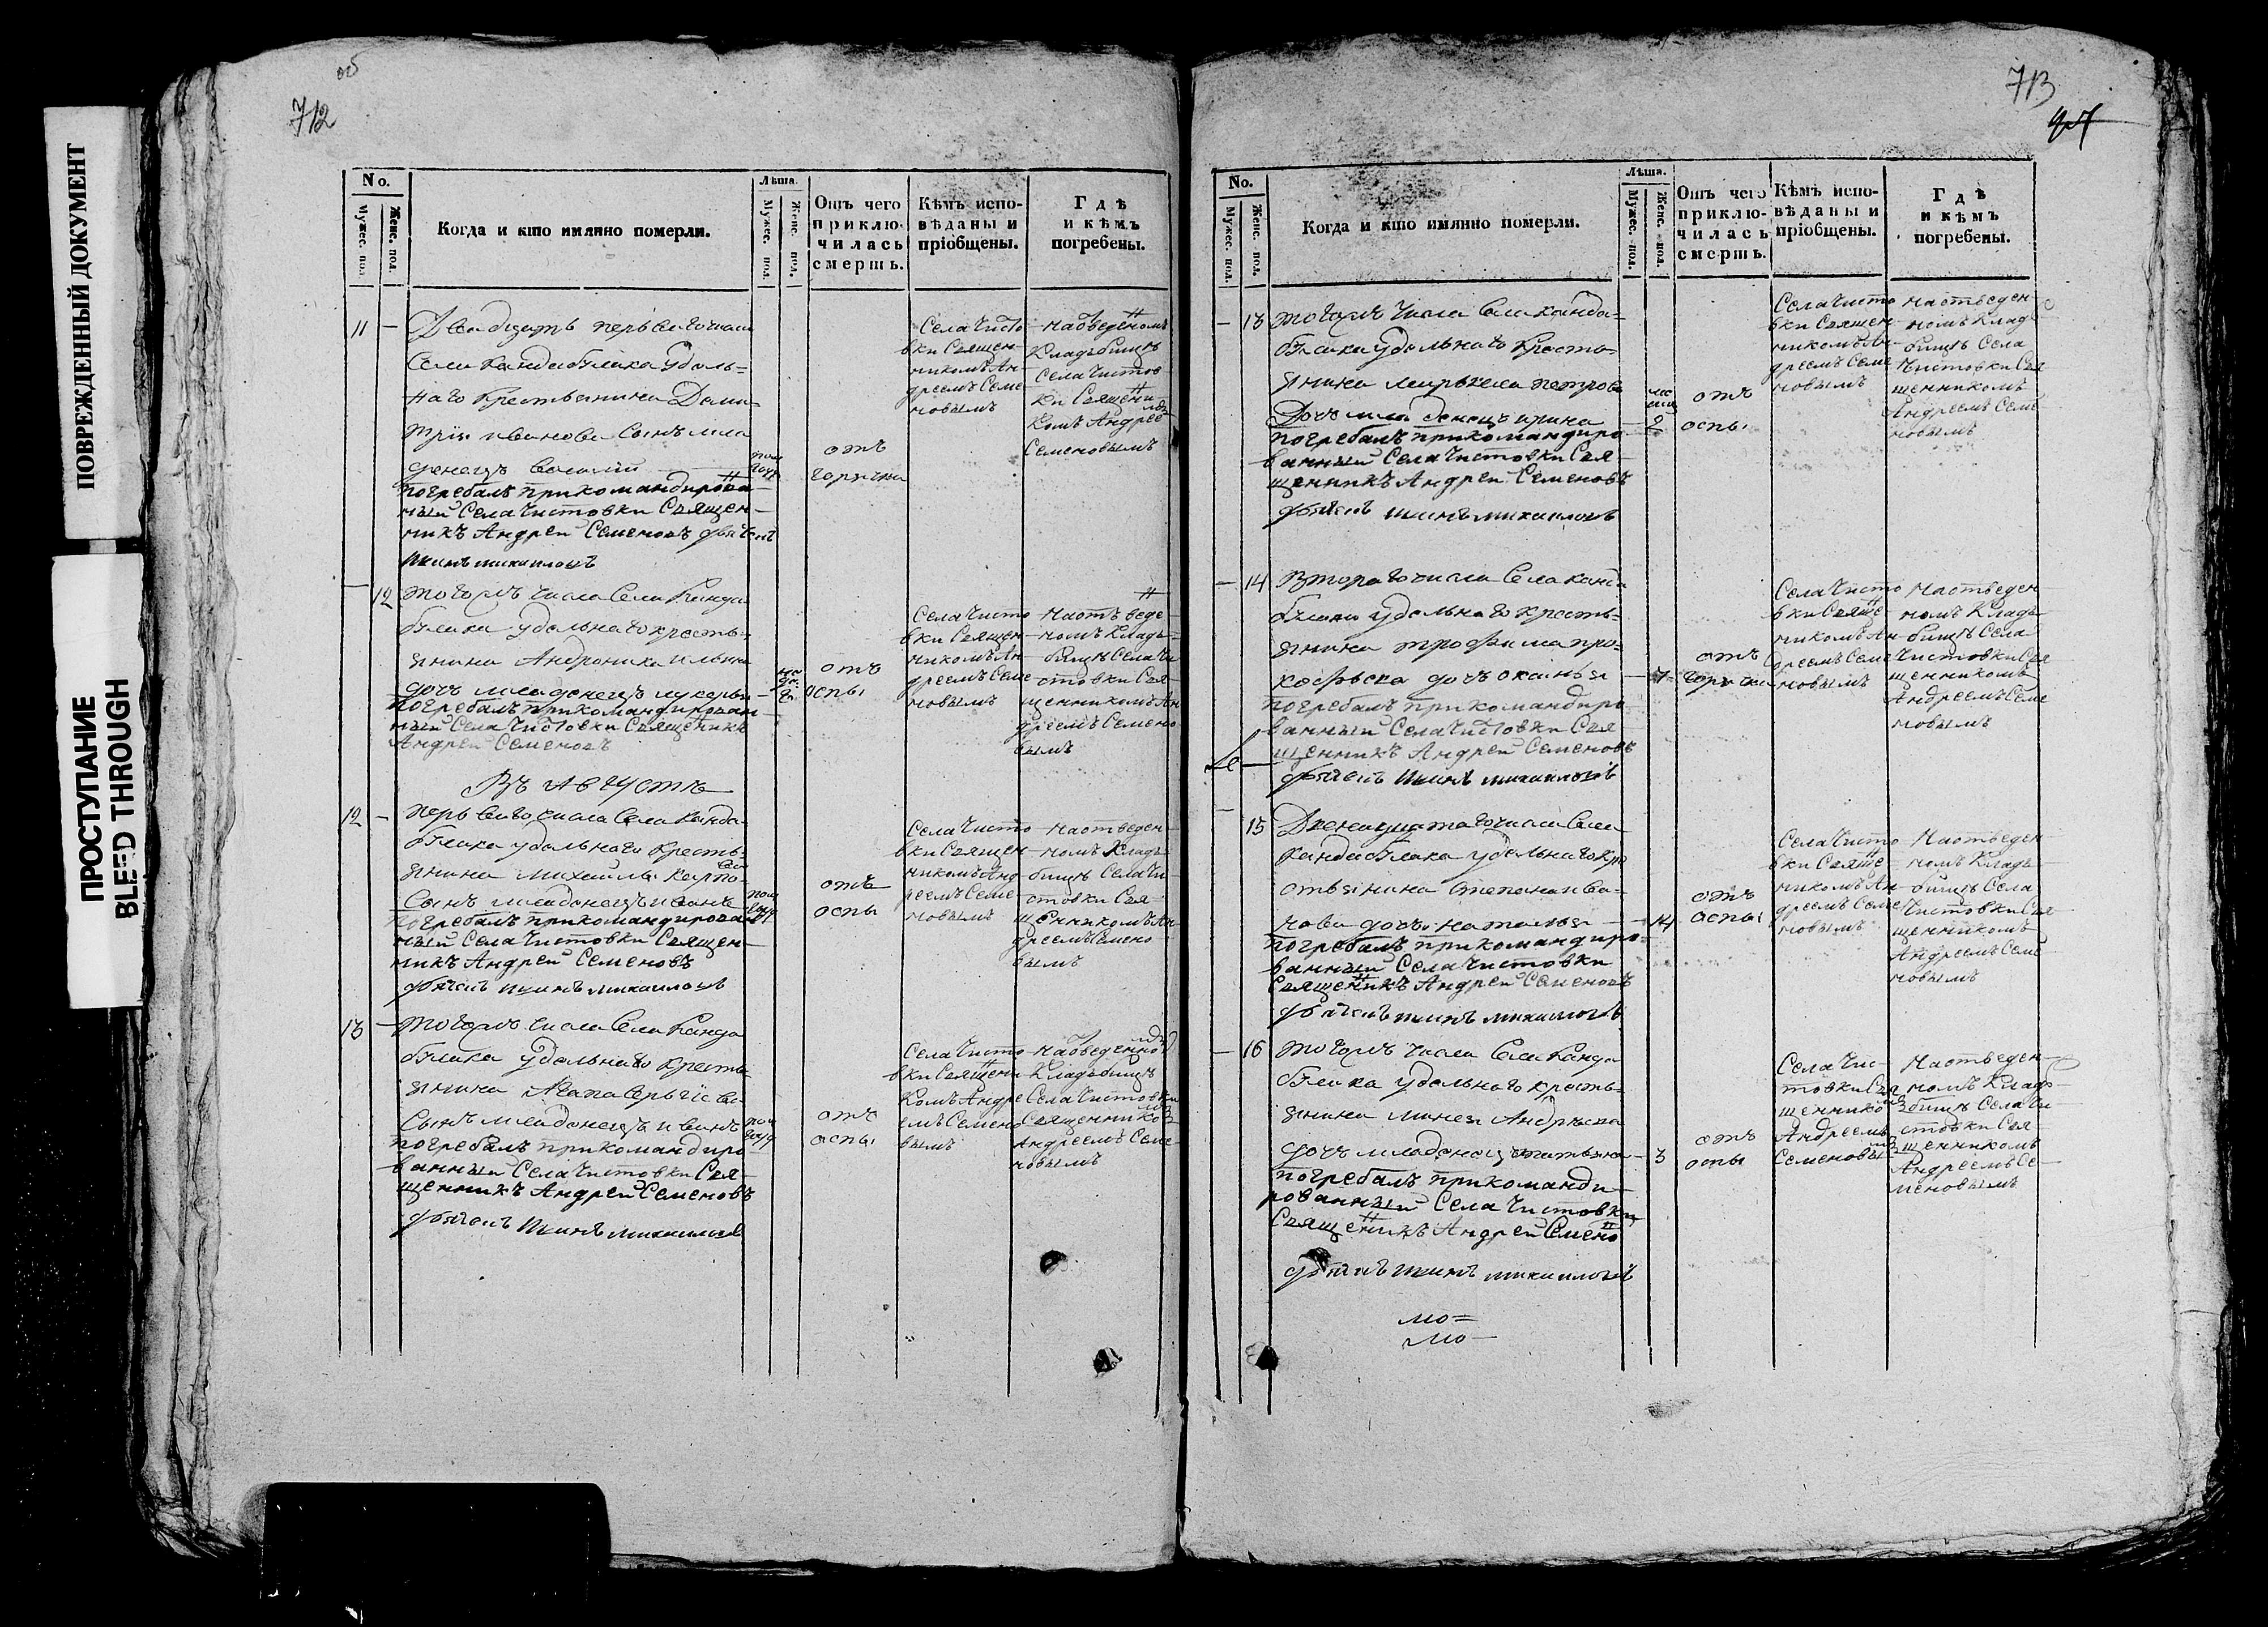 ПОВРЕЖДЕННЫЙ ДОКУМЕНТ
ПРОСТУПАНИЕ
BLEED THROUGH
об
712
No.
Мужес. пол.
Женс. пол.
Когда и кто имянно померли.
Лѣта.
Мужес. пол.
Женс. пол.
Отъ чего
приклю-
чилась
смерть.
Кѣмъ испо-
вѣданы и
пріобщены.
Гдѣ
и кѣмъ
погребены.
11 — Двадцать перваго числа
Села Кандабулака удѣль=
наго крестьянина Дами=
трія Иванова сынъ мла
денецъ Василій
погребалъ прикомандирова
ный Села Чистовки Священ-
никъ Андрей Семеновъ
пол
года
отъ
горячки
Села Чисто
вки Священ-
никомъ Ан-
дреемъ Семе
новымъ
На отведеномъ
Кладбищѣ
Села Чистов
ки Священи
комъ Андрее
Семеновымъ
— 12 того жъ числа Села Канда
булака удѣльнаго кресть=
янина Андроника Ильина
дочь младенецъ Лукерья
погребалъ прикомандирован-
ный Села Чистовки Священикъ
Андрей Семеновъ
отъ
оспы
Села Чисто
вки Священ-
никомъ Ан
дреемъ Семе
новымъ
На отведе-
номъ Кладъ=
бищѣ Села Чи
стовки Свя-
щенникомъ Ан
дреемъ Семено
вымъ
Въ Августѣ
12 — перваго числа Села Канда-
булака удѣльнаго кресть=
янина Михайла Карпо-
ва
Сынъ младенецъ Иванъ
погребалъ прикомандирован
ный Села Чистовки Священ-
никъ Андрей Семеновъ
пол
года
отъ
оспы
Села Чисто
вки Священ
никомъ Анд
реемъ Семе
новымъ
На отведен-
номъ Кладъ-
бищѣ Села Чи-
стовки Свя-
щенникомъ Ан
дреемъ Семено
вымъ
13 — того жъ числа Села Канда
булака удѣльнаго кресть
янина Агапа Сергіева
Сынъ младенецъ Иванъ
погребалъ прикомандиро
ванный Села Чистовки Свя-
щенникъ Андрей Семеновъ
пол
года
отъ
оспы
Села Чисто
вки Священи
комъ Андре
емъ Семено
вымъ
На отведенно
мъ
Кладъбищѣ
Села Чистовки
Священнико
мъ
Андреемъ Семе-
новымъ
713
No.
Мужес. пол.
Женс. пол.
Когда и кто имянно померли.
Лѣта.
Мужес. пол.
Женс. пол.
Отъ чего
приклю-
чилась
смерть.
Кѣмъ испо-
вѣданы и
пріобщены.
Гдѣ
и кѣмъ
погребены.
— 13 того жъ числа Села Канда=
булака удѣльнаго кресть=
янина Петрова
дочь младенецъ Ирина
погребалъ прикомандиро
ванный Села Чистовки Свя-
щенникъ Андрей Семеновъ
2
отъ
оспы
Села Чисто
вки Священ-
никомъ Ан-
дреемъ Семе
новымъ
На отведен-
номъ Клад-
бищѣ Села
Чистовки Свя
щенникомъ
Андреемъ Семе
новымъ
— 14 Втораго числа Села Канда
булака удѣльнаго кресть=
янина Трофима Про=
кофьева дочь Аксинья
погребалъ прикомандиро
ванный Села Чистовки Свя
щенникъ Андрей Семеновъ
7
отъ
горячки
Села Чисто
вки Свяще-
никомъ Ан-
дреемъ Семе
новымъ
На отведен
номъ Кладъ
бищѣ Села
Чистовки Свя
щенникомъ
Андреемъ Семе
новымъ
— 15 Двенацатаго числа Села
Кандабулака удѣльнаго кре
стьянина Степана Ива-
нова дочь Наталья
погребалъ прикомандиро=
ванный Села Чистовки
Священикъ Андрей Семеновъ
14
отъ
оспы
Села Чисто
вки Свяще-
никомъ Ан
дреемъ Семе
новымъ
На отведен
номъ Кладъ
бищѣ Села
Чистовки Свя
щенникомъ
Андреемъ Семе
новымъ
— 16 того жъ числа Села Канда
булака удѣльнаго кресть=
янина Минея Андрѣева
дочь младенецъ Татьяна
погребалъ прикоманди-
рованный Села Чистовки
Священикъ Андрей Семено
3
отъ
оспы
Села Чис-
товки Свя
щеннико
мъ
Андреемъ
Семеновы
мъ
На отведен-
номъ Клад-
бищѣ Села Чи-
стовки Свя-
щенникомъ
Андреемъ Се-
меновымъ